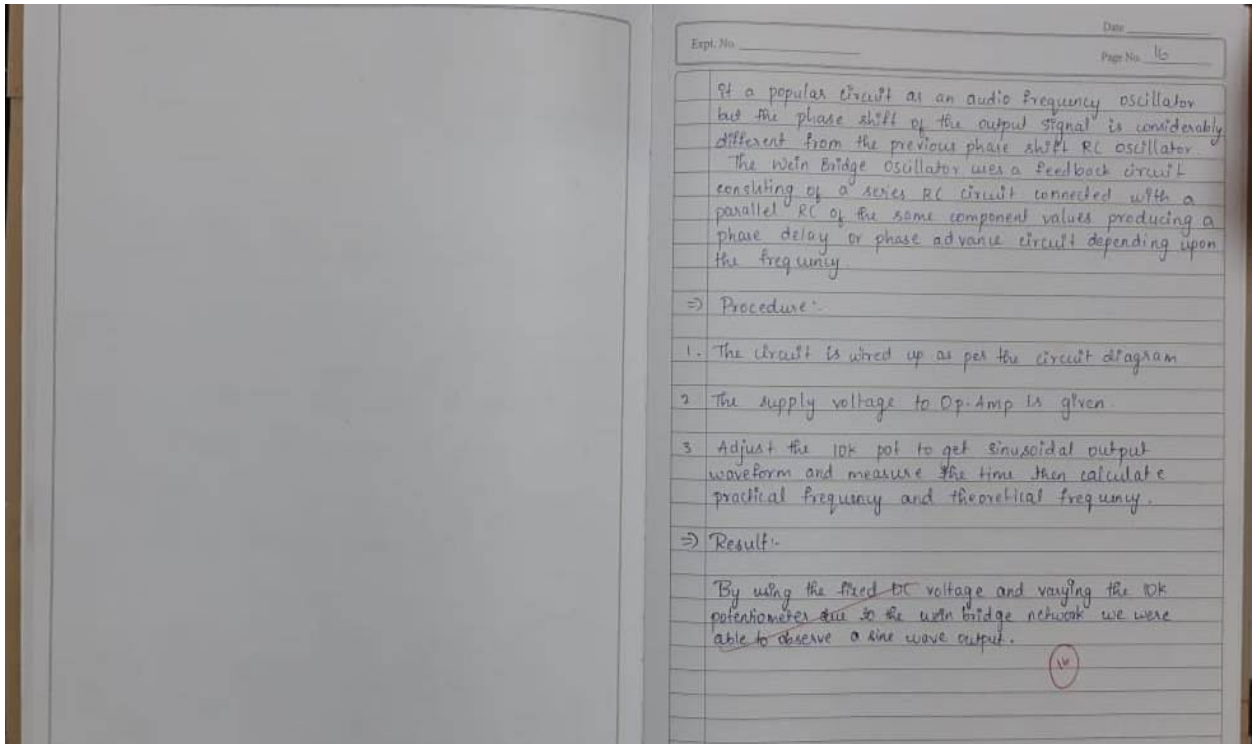 Date
Expt. No.
Page No. 16
It a popular circuit as an audio frequency oscillator
but the phase shift of the output signal is considerably
different from the previous phase shift RC oscillator
The Wein Bridge Oscillator uses a feedback circuit
consisting of a series RC circuit connected with a
parallel RC of the same component values producing a
phase delay or phase advance circuit depending upon
the frequency
=> Procedure:-
1. The circuit is wired up as per the circuit diagram
2 The supply voltage to Op-Amp is given.
3 Adjust the 10k pot to get sinusoidal output
waveform and measure the time then calculate
practical frequency and theoretical frequency.
=> Result:-
By using the fixed DC voltage and varying the 10k
potentiometer due to the wein bridge network we were
able to observe a sine wave output.